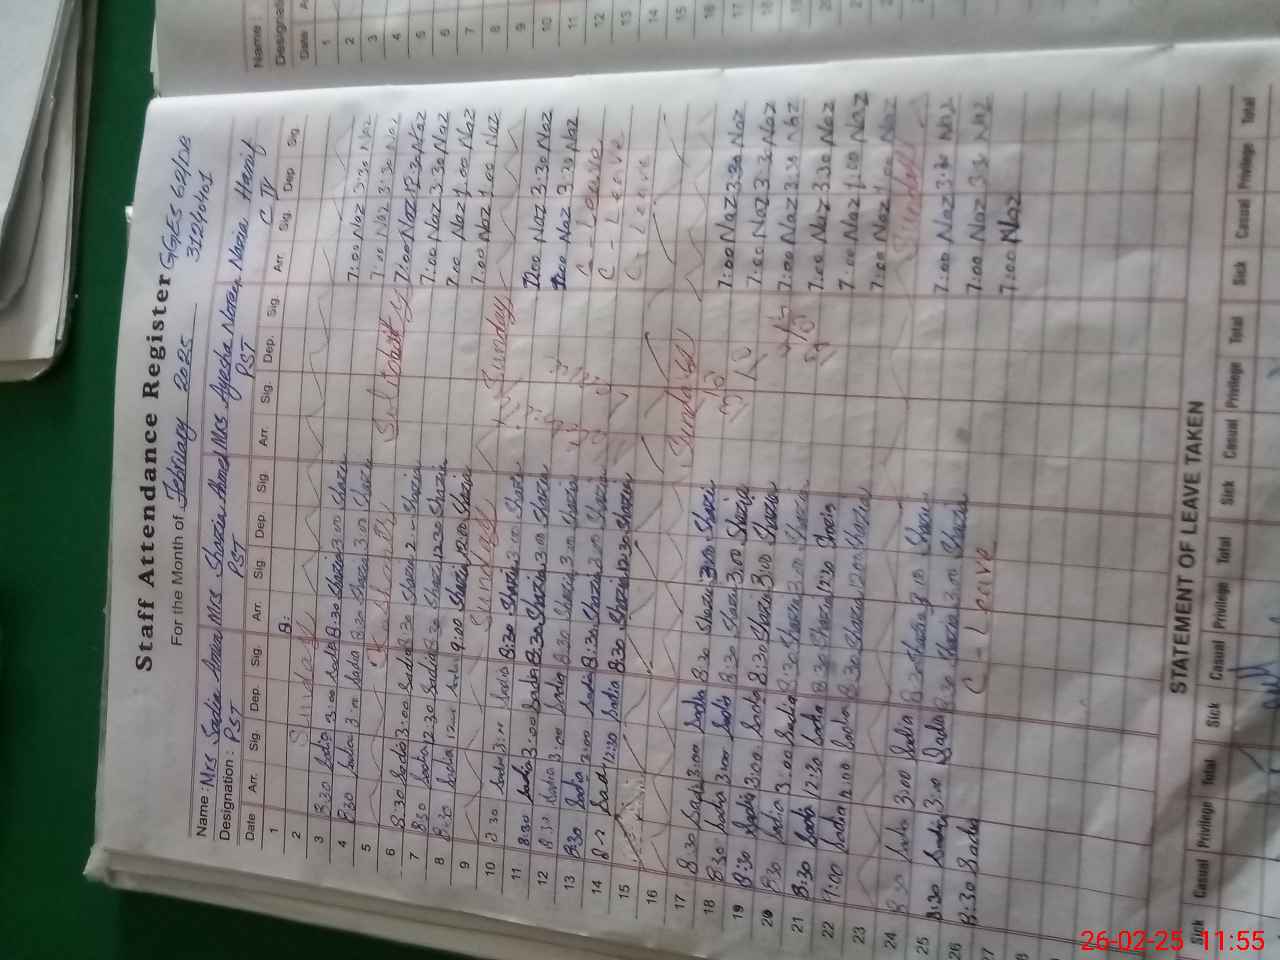 Staff Attendance Register GGES 62/DB
For the Month of February 2025 31240401
Name : Mrs Sadia Amin Mrs Shazia Ahmed Mrs Ayesha Noreen Nazia Hanif
Designation : PST PST PST
Date Arr. Sig. Dep. Sig. Arr. Sig. Dep. Sig. Arr. Sig. Dep. Sig. Arr. Sig. Dep. Sig.
1 8:
2 Sunday
3 8:30 Sadia 3:00 Sadia 8:30 Shazia 3:00 Shazia 7:00 Naz 3:30 Naz
4 8:30 Sadia 3:00 Sadia 8:30 Shazia 3:00 Shazia 7:00 Naz 3:30 Naz
5
6 8:30 Sadia 3:00 Sadia 8:30 Shazia 2 Shazia 7:00 Naz 12:30 Naz
7 8:30 Sadia 12:30 Sadia 8:30 Shazia 12:30 Shazia 7:00 Naz 3:30 Naz
8 8:30 Sadia 12:00 Sadia 9:00 Shazia 12:00 Shazia 7:00 Naz 1:00 Naz
9 Sunday Sunday 7:00 Naz 1:00 Naz
10 8:30 Sadia 3:00 Sadia 8:30 Shazia 3:00 Shazia
11 8:30 Sadia 3:00 Sadia 8:30 Shazia 3:00 Shazia 7:00 Naz 3:30 Naz
12 8:30 Sadia 3:00 Sadia 8:30 Shazia 3:00 Shazia 7:00 Naz 3:30 Naz
13 8:30 Sadia 3:00 Sadia 8:30 Shazia 3:00 Shazia C - Leave
14 Sadia 12:30 Sadia 8:30 Shazia 12:30 Shazia C - Leave
15 C - Leave
16 Sunday
17 8:30 Sadia 3:00 Sadia 8:30 Shazia 3:00 Shazia
18 8:30 Sadia 3:00 Sadia 8:30 Shazia 3:00 Shazia 7:00 Naz 3:30 Naz
19 8:30 Sadia 3:00 Sadia 8:30 Shazia 3:00 Shazia 7:00 Naz 3:30 Naz
20 8:30 Sadia 3:00 Sadia 8:30 Shazia 3:00 Shazia 7:00 Naz 3:30 Naz
21 8:30 Sadia 12:30 Sadia 8:30 Shazia 12:30 Shazia 7:00 Naz 3:30 Naz
22 9:00 Sadia Sadia 8:30 Shazia 12:00 Shazia 7:00 Naz 1:00 Naz
23 7:00 Naz 1:00 Naz
24 8:30 Sadia 3:00 Sadia 8:30 Shazia 3:00 Shazia Sunday
25 8:30 Sadia 3:00 Sadia 8:30 Shazia 3:00 Shazia 7:00 Naz 3:30 Naz
26 8:30 Sadia C - Leave 7:00 Naz 3:30 Naz
27 7:00 Naz
STATEMENT OF LEAVE TAKEN
Sick Casual Privilege Total Sick Casual Privilege Total Sick Casual Privilege Total Sick Casual Privilege Total
Name :
Date
1
2
3
4
5
6
7
8
9
10
11
12
13
14
15
16
17
18
19
20
21
26-02-25 11:55